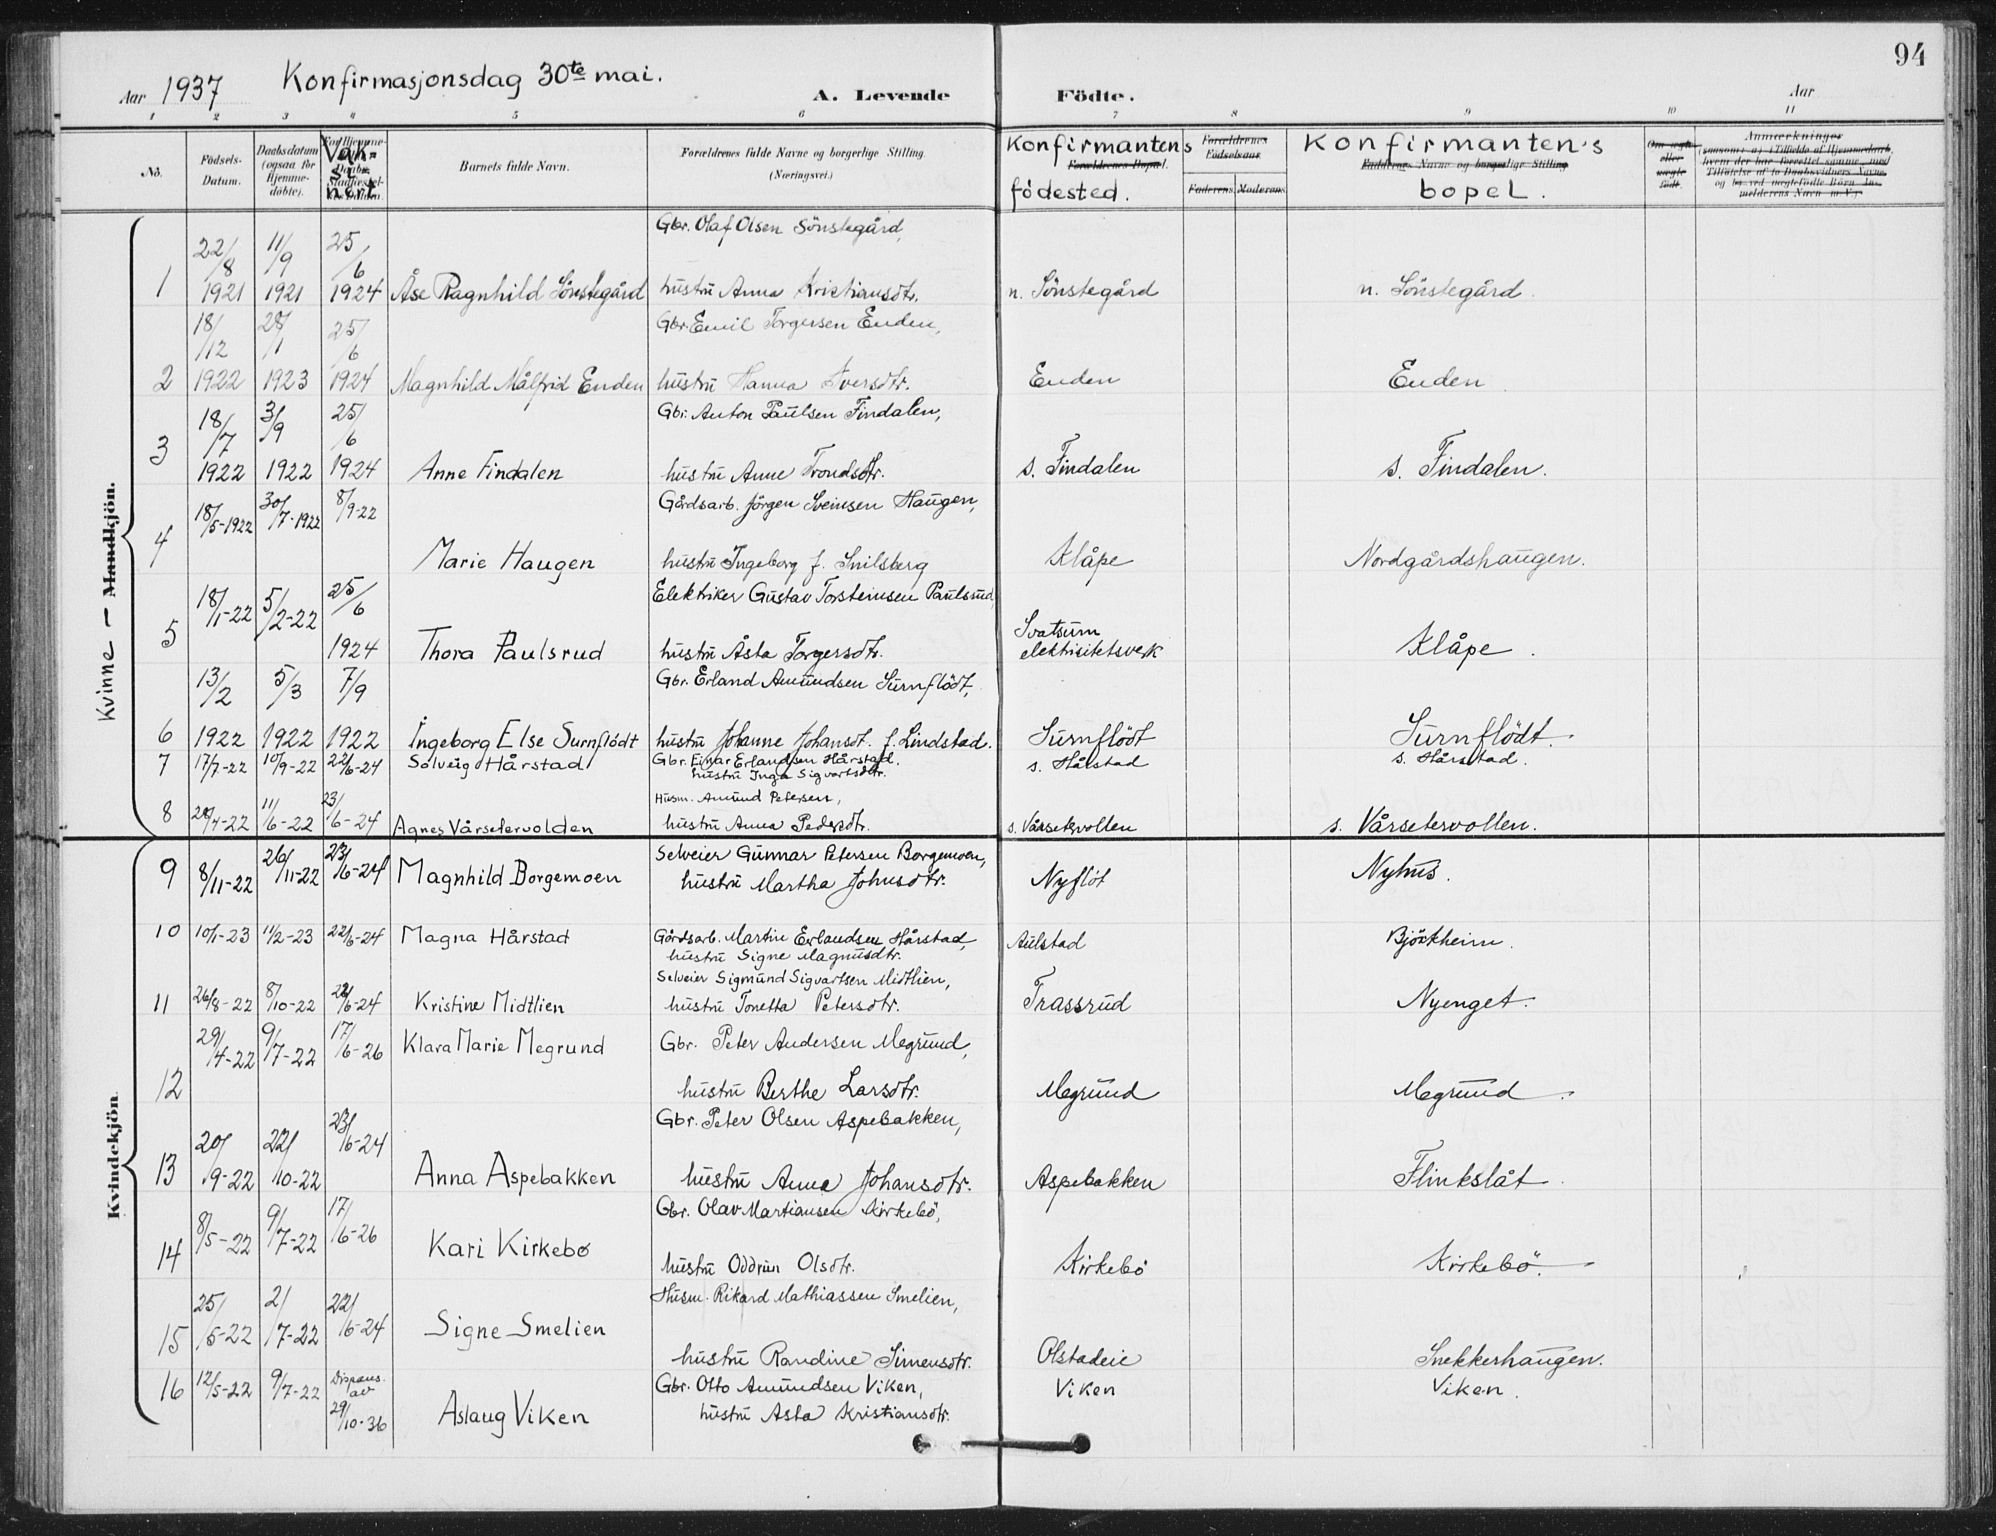 94
Aar 1937 Konfirmasjonsdag 30te mai. A. Levende Födte. Aar
1 2 3 4 5 6 7 8 9 10 11
No. Födsels-Datum. Daabsdatum (ogsaa for Hjemmedöbte). Vaksinert. Barnets fulde Navn. Forældrenes fulde Navne og borgerlige Stilling (Næringsvei.) Konfirmantens födested. Forældrenes Bopæl. Forældrenes Födselsaar Faderens Moderens Konfirmanten's bopel. Faddernes Navne og borgerlige Stilling Om ægte eller uægte födt. Anmærkninger
Kvinne - Mandkjön.
Gbr. Olaf Olsen Sönstegård,
1 22/8 1921 11/9 1921 25/6 1924 Åse Ragnhild Sönstegård hustru Anna Kristiansdtr. n. Sönstegård n. Sönstegård.
Gbr. Emil Torgersen Enden,
2 18/12 1922 28/1 1923 25/6 1924 Magnhild Målfrid Enden hustru Hanna Iversdtr. Enden Enden
Gbr. Anton Paulsen Findalen,
3 18/7 1922 3/9 1922 25/6 1924 Anne Findalen hustru Anne Trondsdtr. s. Findalen s. Findalen.
Gårdsarb. Jörgen Sveinsen Haugen,
4 18/5-1922 30/7-1922 8/9-22 Marie Haugen hustru Ingeborg f. Snilsberg Klåpe Nordgårdshaugen.
Elektriker Gustav Torsteinsen Paulsrud,
5 18/1-22 5/2-22 25/6 1924 Thora Paulsrud hustru Åsta Torgersdtr. Svatsum elektrisitetsverk Klåpe.
Gbr. Erland Amundsen Surnflödt,
6 13/2 1922 5/3 1922 7/9 1922 Ingeborg Else Surnflödt hustru Johanne Johansdt. f. Lindstad. Surnflödt Surnflödt.
7 17/7-22 10/9-22 22/6-24 Solveig Hårstad Gbr. Einar Erlandsen Hårstad. s. Hårstad s. Hårstad.
hustru Inga Sigvartsdtr.
Husm. Amund Petersen,
8 28/4-22 11/6-22 23/6-24 Agnes Vårsetervolden hustru Anna Pedersdtr. s. Vårsetervollen s. Vårsetervollen.
Kvindekjön.
Selveier Gunnar Petersen Borgemoen,
9 8/11-22 26/11-22 23/6-24 Magnhild Borgemoen hustru Martha Johnsdtr. Nyflöt Nyhus.
10 10/1-23 11/2-23 22/6-24 Magna Hårstad Gårdsarb. Martin Erlandsen Hårstad, Aulstad Björkheim.
hustru Signe Magnusdtr.
Selveier Sigmund Sigvartsen Midtlien,
11 26/8-22 8/10-22 22/6-24 Kristine Midtlien hustru Tonetta Petersdtr. Trassrud Nyenget.
29/4-22 9/7-22 17/6-26 Klara Marie Megrund Gbr. Peter Andersen Megrund,
12 hustru Berthe Larsdtr. Megrund Megrund
Gbr. Peter Olsen Aspebakken,
13 20/9-22 22/10-22 23/6-24 Anna Aspebakken hustru Anna Johansdtr. Aspebakken Flinkslåt
Gbr. Olav Martiansen Kirkebö,
14 8/5-22 9/7-22 17/6-26 Kari Kirkebö hustru Oddrun Olsdtr. Kirkebö Kirkebö.
Husm. Rikard Mathiassen Smelien,
15 25/5-22 2/7-22 22/6-24 Signe Smelien hustru Randine Simensdtr. Olstadeie Snekkerhaugen.
16 12/5-22 9/7-22 Dispens. av 29/10-36 Aslaug Viken Gbr. Otto Amundsen Viken, Viken Viken.
hustru Asta Kristiansdtr.